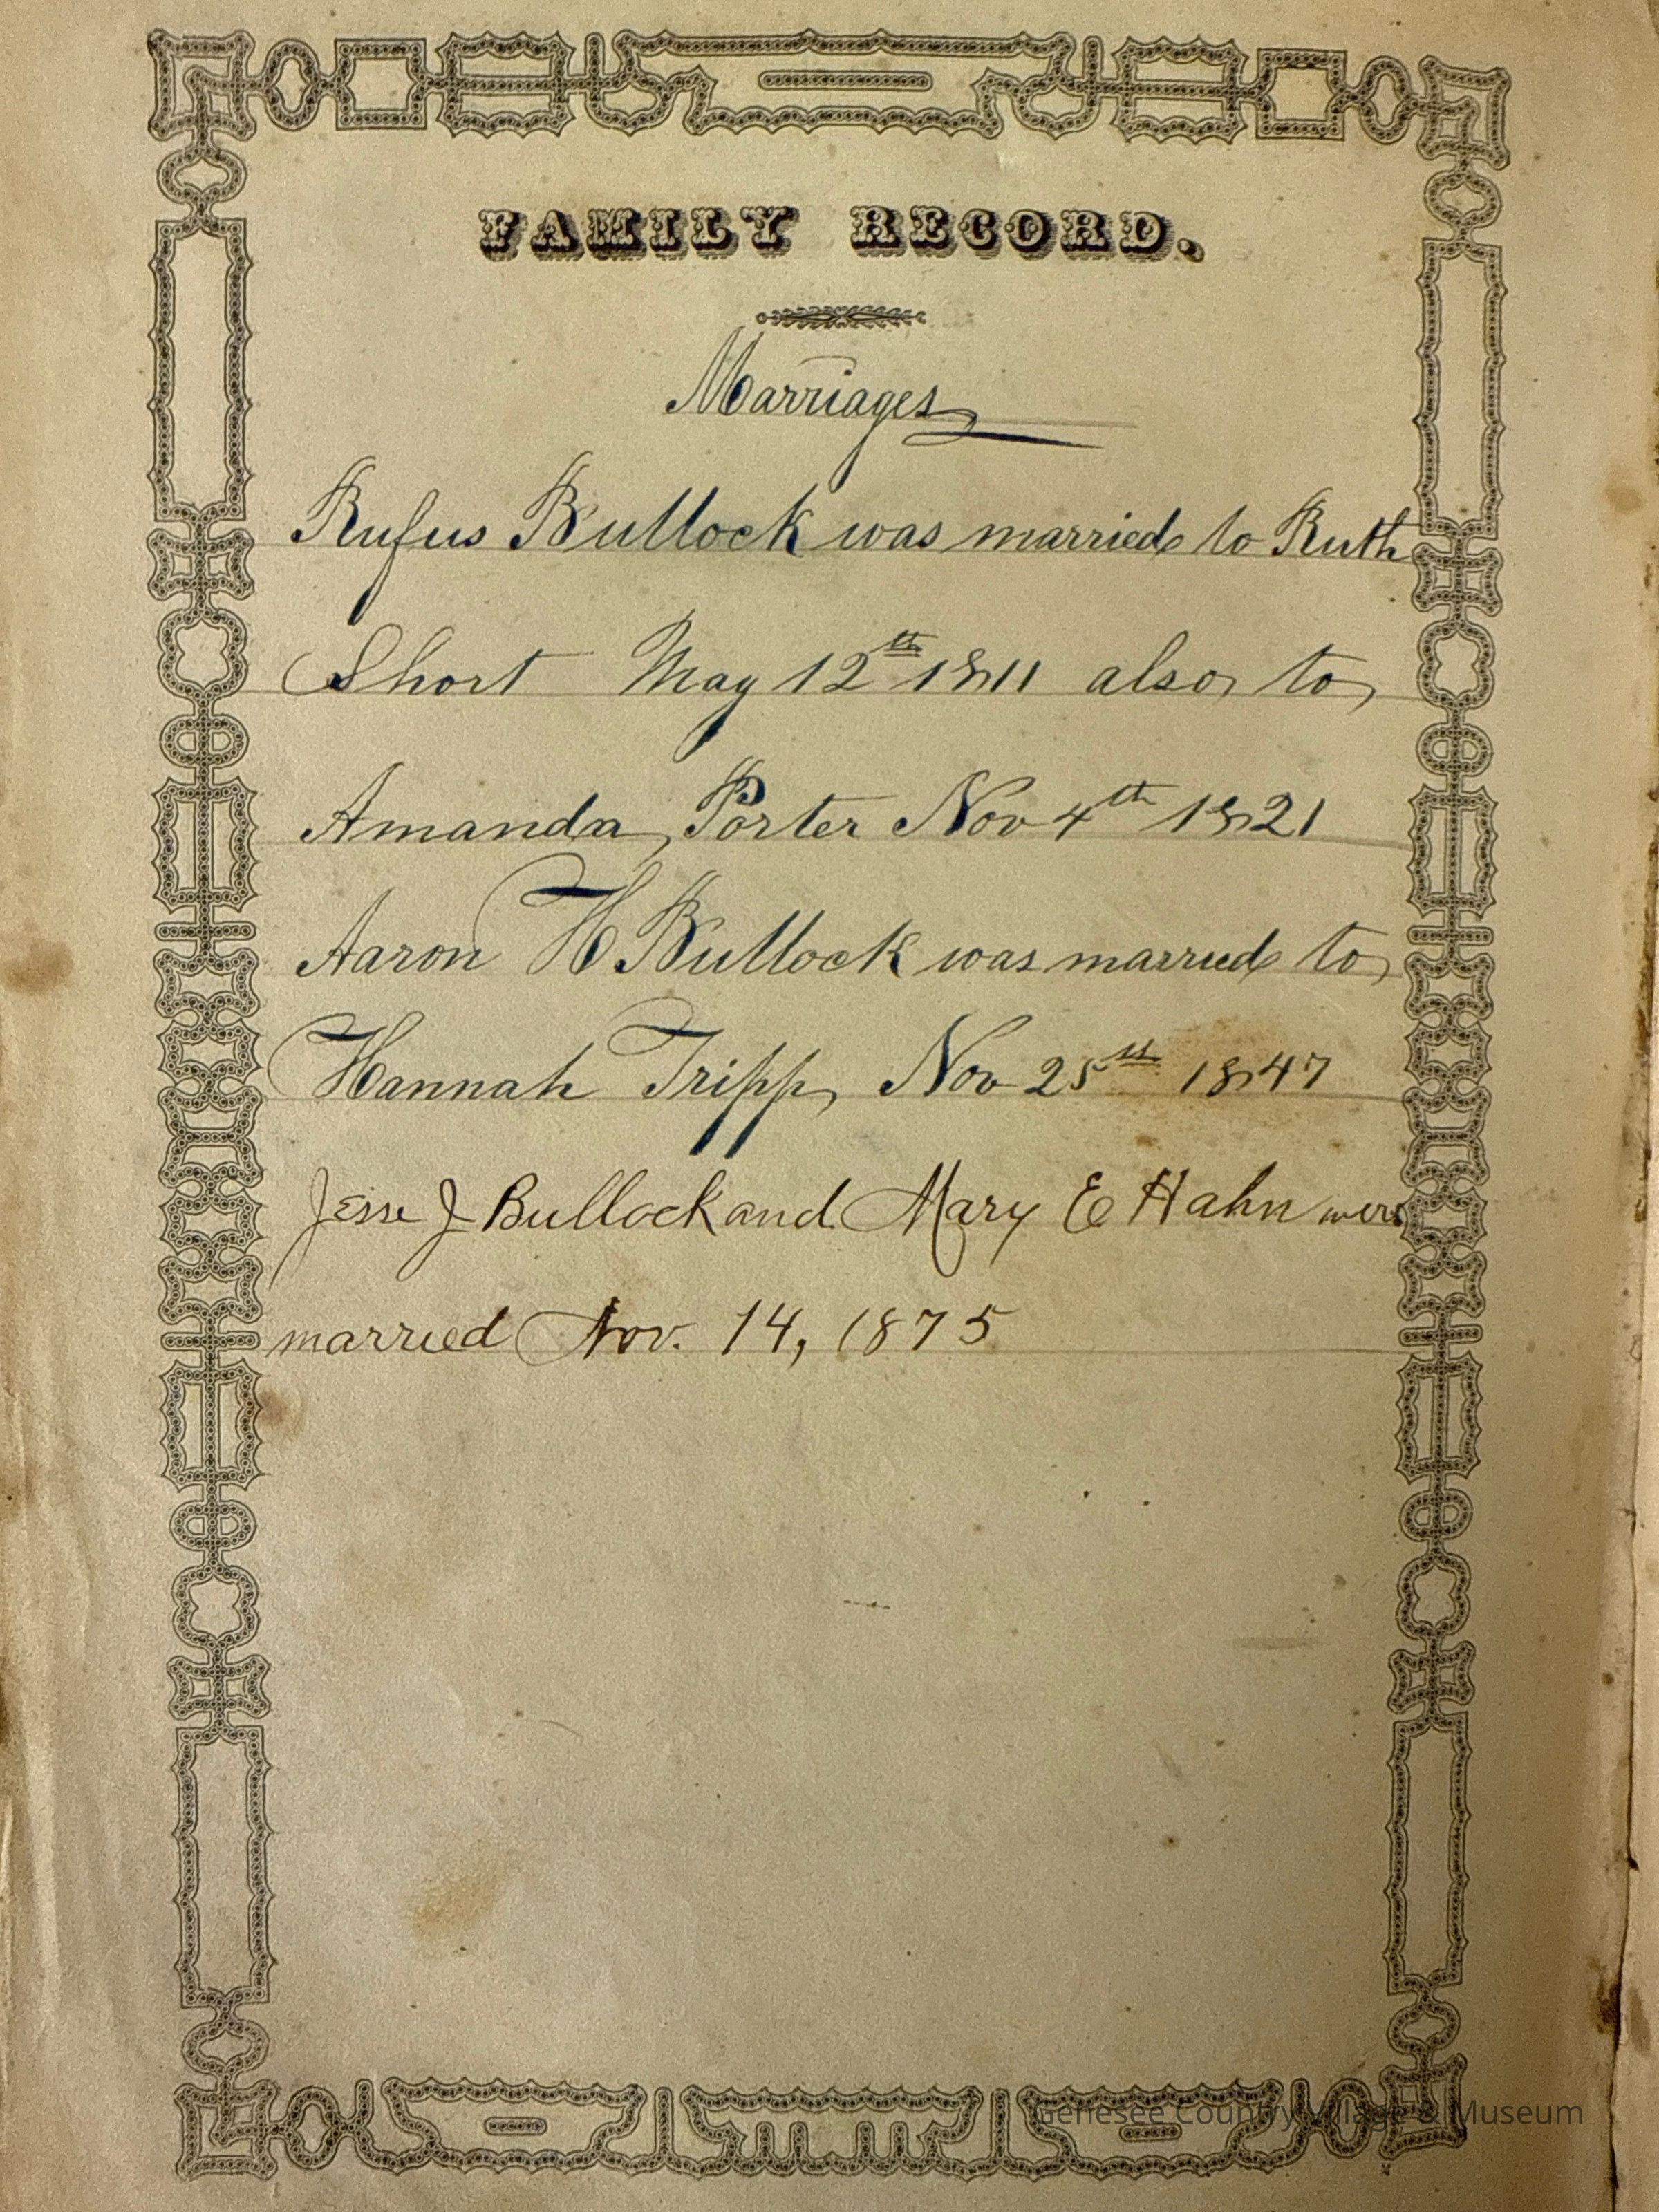 FAMILY RECORD.
Marriages
Rufus Bullock was married to Ruth
Short May 12th 1811 also to
Amanda Porter Nov 4th 1821
Aaron H Bullock was married to
Hannah Tripp Nov 25st 1847
Jesse J Bullock and Mary E Hahn were
married Nov. 14, 1875
Genesee Country Village & Museum